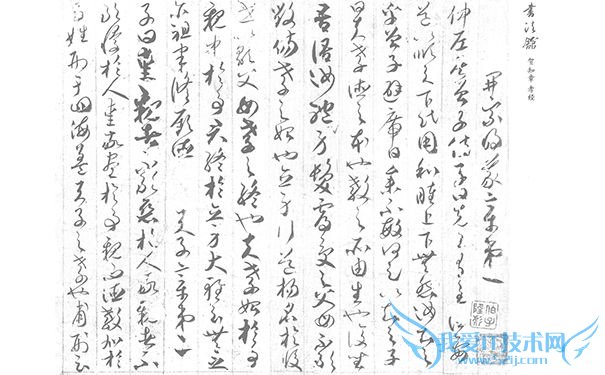 書法館
賀知章孝經
開宗明義章第一
仲尼居曾子侍子曰先王有至德要
道以順天下民用和睦上下無怨汝知之
乎曾子避席曰參不敏何足以知之子
曰夫孝德之本也教之所由生也復坐
吾語汝體髮膚受之父母不敢
毀傷孝之始也立身行道揚名於後
世以顯父母孝之終也夫孝始於事
親中於事君終於立身大雅云無念
尔祖聿脩厥德 天子章第二
子曰愛親者不敢惡於人敬親者不
敢慢於人愛敬盡於事親而德教加於
百姓刑于四海蓋天子之孝也甫刑云
我爱IT技术网